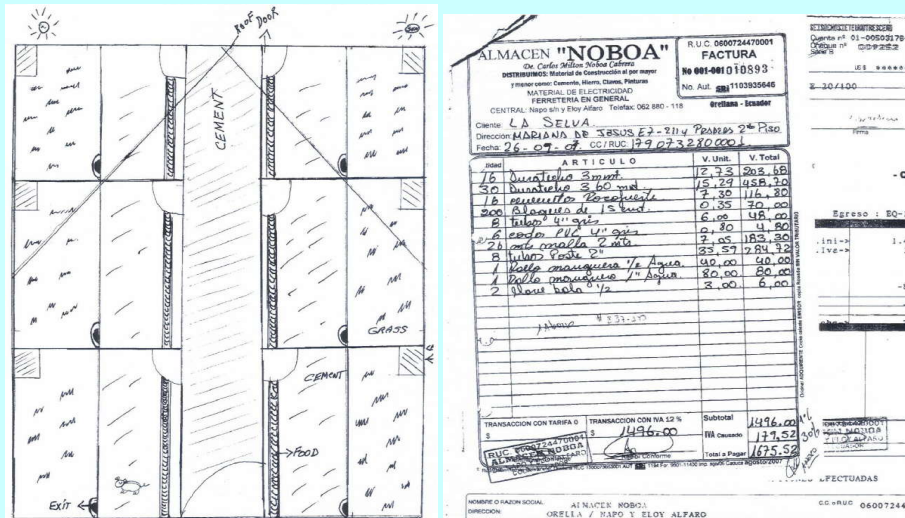 ROOF DOOR
CEMENT
GRASS
CEMENT
→FOOD
EXIT ←
ALMACEN "NOBOA"
De. Carlos Milton Noboa Cabrera
DISTRIBUIMOS: Material de Construcción al por mayor
y menor como: Cemento, Hierro, Clavos, Pinturas
MATERIAL DE ELECTRICIDAD
FERRETERIA EN GENERAL
CENTRAL: Napo s/n y Eloy Alfaro Telefax: 062 880 - 118
R.U.C. 0600724470001
FACTURA
No 001-001 010893
No. Aut. SRI 1103935645
Orellana - Ecuador
Cliente: LA SELVA.
Dirección: MARIANA DE JESUS E7-211 y PRADERA 2do Piso
Fecha: 26-09-07. CC/RUC: 1790732800001
tidad ARTICULO V. Unit. V. Total
16 Duratecho 3 mmt. 12,73 203,68
30 Duratecho 3 60 mt. 15,29 458,70
16 cementos Rocafuerte 7,30 116,80
200 Bloques de 15 cmt. 0,35 70,00
8 tubos 4" gris 6,00 48,00
6 codos PVC 4" gris 0,80 4,80
26 mts malla 2 mts. 7,05 183,30
8 tubos Poste 2" 35,59 284,72
1 Rollo manguera 1/2 Agua. 40,00 40,00
1 Rollo manguera 1" Agua. 80,00 80,00
2 llave bola 1/2 3,00 6,00
TRANSACCION CON TARIFA 0
$
TRANSACCION CON IVA 12 %
$ 1496.00
Subtotal 1496.00
IVA Causado 179,52
Total a Pagar 1675.52
RUC. 0600724470001
ALMACEN NOBOA
Recibí Conforme
Cuenta nº 01-00503176
Cheque nº
Serie B
US $
E 20/100
Firma
Egreso : EQ-
.ini->
.lve->
EFECTUADAS
NOMBRE O RAZON SOCIAL:
DIRECCION:
ALMACEN NOBOA
ORELLA / NAPO Y ELOY ALFARO
C.C. o RUC 06007244